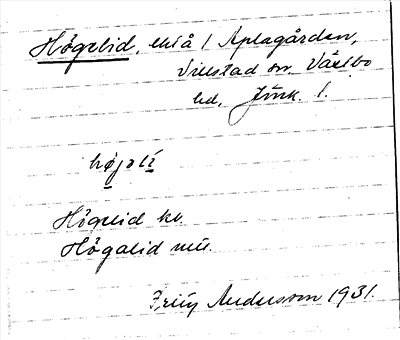 Högelid, ekiå i Aplagården,
Villstad sn. Västbo
hd, Jönk. l.
Högelid kv.
Högalid mu.
Andersson 1931.